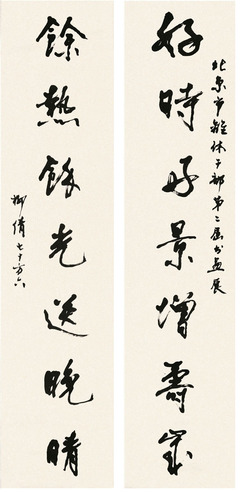 北京市離休干部第二届书画展
好時好景增壽歲
餘熱餘光送晚晴
柳倩七十有六